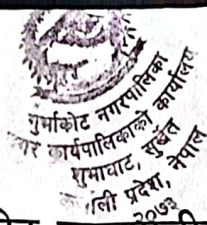 गुर्भाकोट नगरपालिका
नगर कार्यपालिकाको कार्यालय
शुभाघाट, सुर्खेत
ली प्रदेश, नेपाल
२०७३